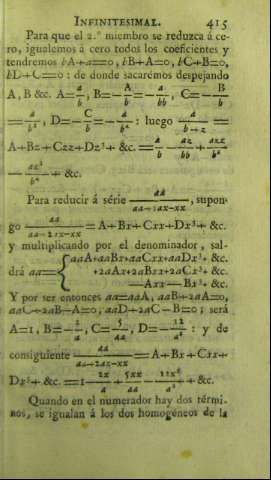 INFINITESIMAL. 415
Para que el 2.º miembro se reduzca á ce-
ro, igualemos á cero todos los coeficientes y
tendremos bA+a=0, bB+A=0, bC+B=0,
bD+C=0: de donde sacarémos despejando
A, B &c. A=a/b, B=-A/b=-a/bb, C=-B/b
=a/b³, D=-C/b=-a/b⁴: luego a/b+z=
A+Bz+Czz+Dz³+ &c.=a/b-az/bb+azz/b³
-az³/b⁴+ &c.
Para reducir á série aa/aa+2ax-xx, supon-
go aa/aa-2ax-xx=A+Bx+Cxx+Dx³+ &c.
y multiplicando por el denominador, sal-
drá aa={aaA+aaBx+aaCxx+aaDx³+ &c.
+2aAx+2aBxx+2aCx³+ &c.
-Axx-Bx³+ &c.
Y por ser entonces aa=aaA, aaB+2aA=0,
aaC+2aB-A=0; aaD+2aC-B=0; será
A=1, B=-2/a, C=5/aa, D=-12/a³: y de
consiguiente aa/aa+2ax-xx=A+Bx+Cxx+
Dx³+ &c.=1-2x/a+5xx/aa-12x³/a³+ &c.
Quando en el numerador hay dos térmi-
nos, se igualan á los dos homogéneos de la